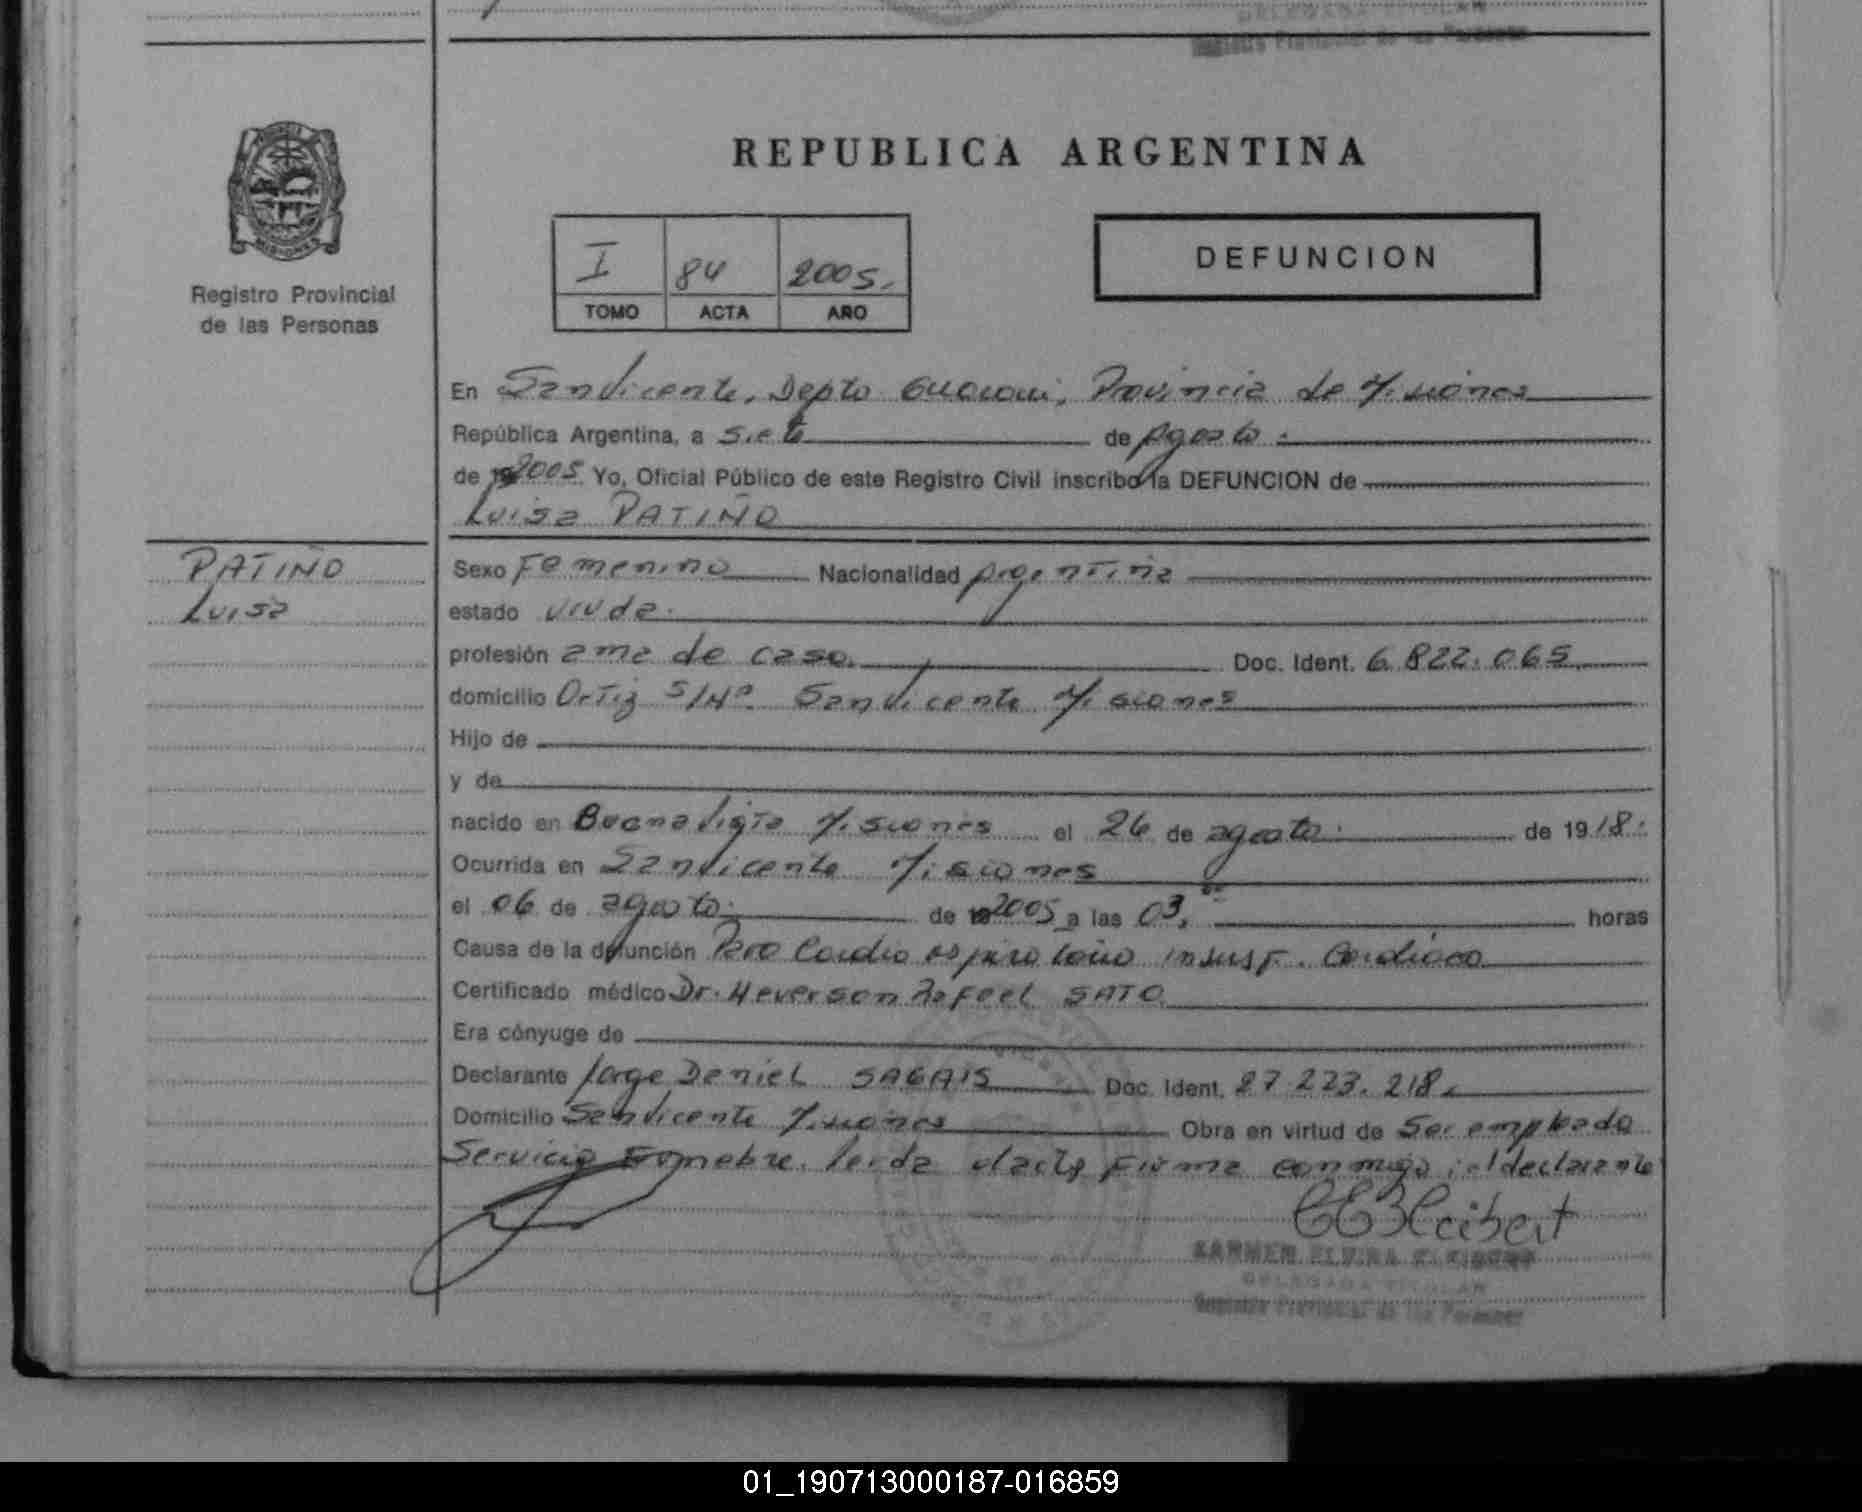 DELEGADA TITULAR
Registro Provincial de las Personas
PROVINCIA
MISIONES
Registro Provincial
de las Personas
REPUBLICA ARGENTINA
I 84 2005.
TOMO ACTA AÑO
DEFUNCION
En San Vicente, Depto Guarani, Provincia de Misiones
República Argentina, a siete de Agosto.
de 19 2005 Yo, Oficial Público de este Registro Civil inscribo la DEFUNCION de
Luisa PATIÑO
PATIÑO
Luisa
Sexo Femenino Nacionalidad Argentina
estado viuda.
profesión ama de casa. Doc. Ident. 6.822.065.
domicilio Ortiz S/Nº. San Vicente Misiones
Hijo de
y de
nacido en Buena Vista Misiones el 26 de agosto. de 1918.
Ocurrida en San Vicente Misiones
el 06 de agosto. de 19 2005 a las 03, horas
Causa de la defunción Paro Cardio respiratorio insuf. Cardiaca
Certificado médico Dr. Heverson Rafael SATO
Era cónyuge de
Declarante Jorge Daniel Doc. Ident. 27.223.218.
Domicilio San Vicente Misiones Obra en virtud de Ser empleado
Servicio Funebre. Leida el acta Firma conmigo el declarante
CEKleibert
KARMEN ELVIRA KLEIBERT
DELEGADA TITULAR
Registro Provincial de las Personas
01_190713000187-016859